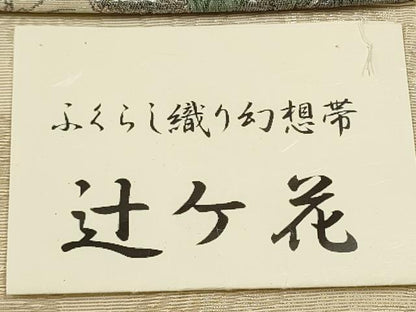 ふくらし織り幻想帯
辻ケ花